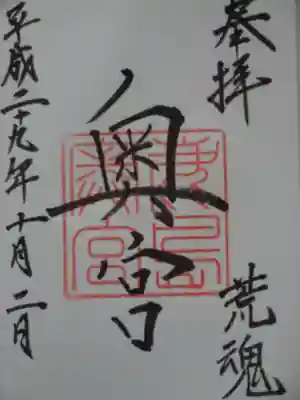 奉拝
荒魂
奥宮
平成二十九年十月二日